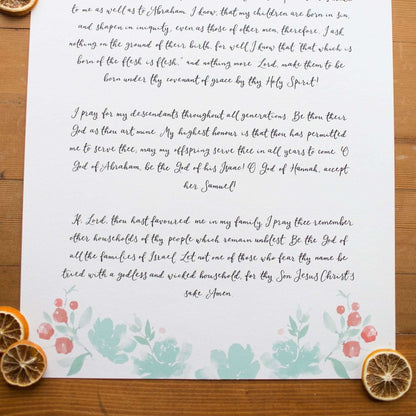 to me as well as to Abraham. I know, that my children are born in sin,
and shapen in iniquity, even as those of other men; therefore, I ask
nothing on the ground of their birth, for well I know that "that which is
born of the flesh is flesh," and nothing more. Lord, make them to be
born under thy covenant of grace by thy Holy Spirit!
I pray for my descendants throughout all generations. Be thou their
God as thou art mine. My highest honour is that thou has permitted
me to serve thee; may my offspring serve thee in all years to come. O
God of Abraham, be the God of his Isaac! O God of Hannah, accept
her Samuel!
If, Lord, thou hast favoured me in my family, I pray thee remember
other households of thy people which remain unblest. Be the God of
all the families of Israel. Let not one of those who fear thy name be
tried with a godless and wicked household, for thy Son Jesus Christ's
sake. Amen.